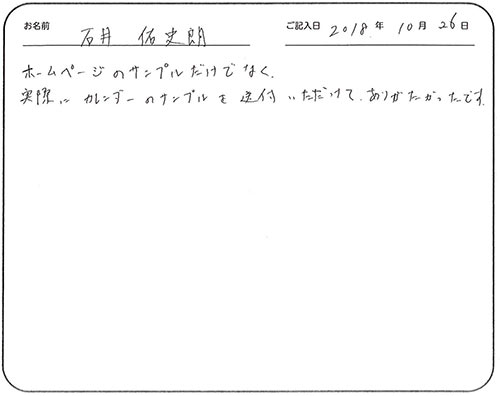 お名前 石井 佑史朗 ご記入日 2018年 10月 26日
ホームページのサンプルだけでなく、
実際に カレンダーのサンプルを 送付 いただけて、ありがたかったです。